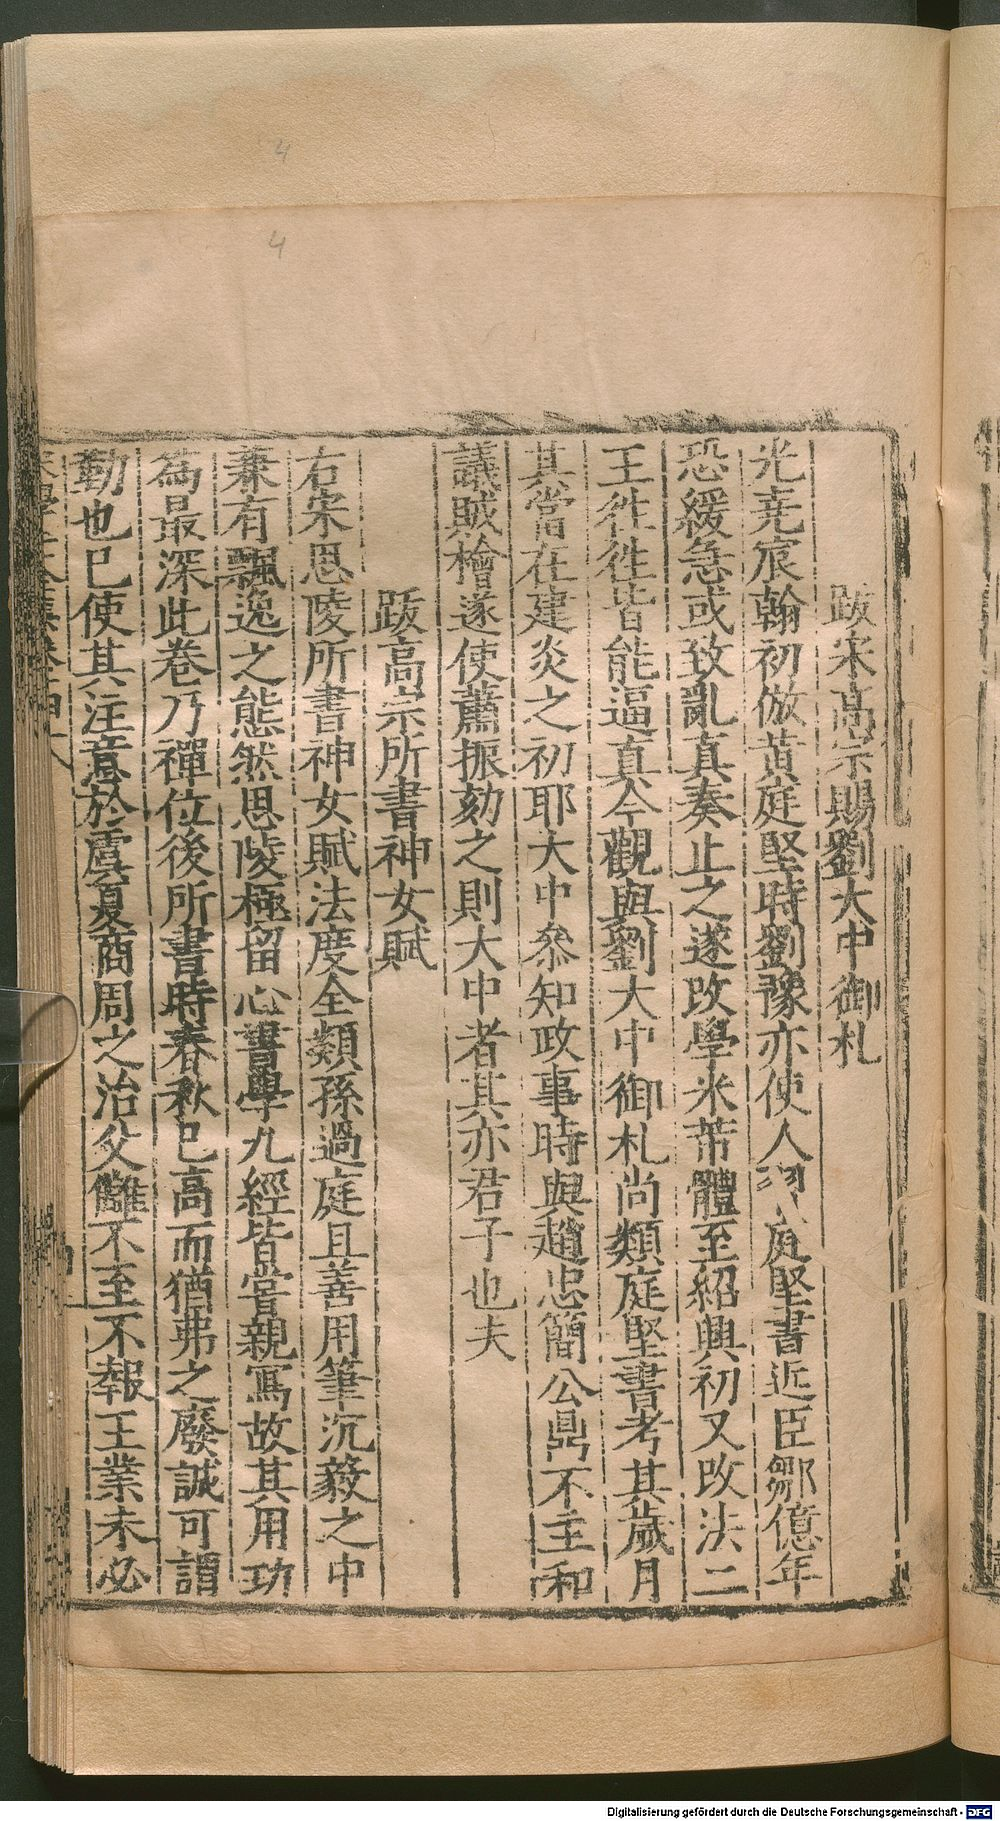 跋宋高宗賜劉大中御札
光堯宸翰初倣黃庭堅時劉豫亦使人習庭堅書近臣鄒億年
恐緩急或致亂真奏止之遂改學米芾體至紹興初又改法二
王徃徃皆能逼真今觀與劉大中御札尚類庭堅書考其歲月
其當在建炎之初耶大中叅知政事時與趙忠簡公鼎不主和
議賊檜遂使蕭振劾之則大中者其亦君子也夫
跋高宗所書神女賦
右宋思陵所書神女賦法度全類孫過庭且善用筆沉毅之中
兼有飄逸之態然思陵極留心書學九經皆嘗親寫故其用功
為最深此卷乃禪位後所書時春秋已高而猶弗之廢誠可謂
勤也已使其注意於虞夏商周之治父讎不至不報王業未必
4
4
Digitalisierung gefördert durch die Deutsche Forschungsgemeinschaft - DFG